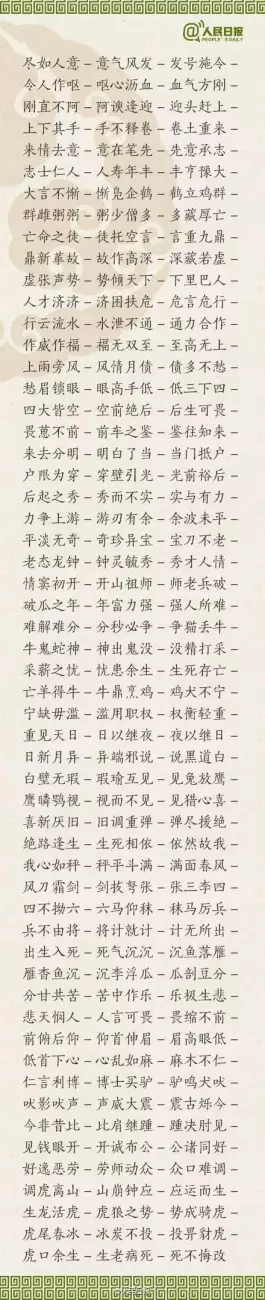 @人民日报
PEOPLE'S DAILY
尽如人意 – 意气风发 – 发号施令 –
令人作呕 – 呕心沥血 – 血气方刚 –
刚直不阿 – 阿谀逢迎 – 迎头赶上 –
上下其手 – 手不释卷 – 卷土重来 –
来情去意 – 意在笔先 – 先意承志 –
志士仁人 – 人寿年丰 – 丰亨豫大 –
大言不惭 – 惭凫企鹤 – 鹤立鸡群 –
群雌粥粥 – 粥少僧多 – 多藏厚亡 –
亡命之徒 – 徒托空言 – 言重九鼎 –
鼎新革故 – 故作高深 – 深藏若虚 –
虚张声势 – 势倾天下 – 下里巴人 –
人才济济 – 济困扶危 – 危言危行 –
行云流水 – 水泄不通 – 通力合作 –
作威作福 – 福无双至 – 至高无上 –
上雨旁风 – 风情月债 – 债多不愁 –
愁眉锁眼 – 眼高手低 – 低三下四 –
四大皆空 – 空前绝后 – 后生可畏 –
畏葸不前 – 前车之鉴 – 鉴往知来 –
来去分明 – 明白了当 – 当门抵户 –
户限为穿 – 穿壁引光 – 光前裕后 –
后起之秀 – 秀而不实 – 实与有力 –
力争上游 – 游刃有余 – 余波未平 –
平淡无奇 – 奇珍异宝 – 宝刀不老 –
老态龙钟 – 钟灵毓秀 – 秀才人情 –
情窦初开 – 开山祖师 – 师老兵破 –
破瓜之年 – 年富力强 – 强人所难 –
难解难分 – 分秒必争 – 争猫丢牛 –
牛鬼蛇神 – 神出鬼没 – 没精打采 –
采薪之忧 – 忧患余生 – 生死存亡 –
亡羊得牛 – 牛鼎烹鸡 – 鸡犬不宁 –
宁缺毋滥 – 滥用职权 – 权衡轻重 –
重见天日 – 日以继夜 – 夜以继日 –
日新月异 – 异端邪说 – 说黑道白 –
白璧无瑕 – 瑕瑜互见 – 见兔放鹰 –
鹰瞵鹗视 – 视而不见 – 见猎心喜 –
喜新厌旧 – 旧调重弹 – 弹尽援绝 –
绝路逢生 – 生死相依 – 依然故我 –
我心如秤 – 秤平斗满 – 满面春风 –
风刀霜剑 – 剑拔弩张 – 张三李四 –
四不拗六 – 六马仰秣 – 秣马厉兵 –
兵不由将 – 将计就计 – 计无所出 –
出生入死 – 死气沉沉 – 沉鱼落雁 –
雁杳鱼沉 – 沉李浮瓜 – 瓜剖豆分 –
分甘共苦 – 苦中作乐 – 乐极生悲 –
悲天悯人 – 人言可畏 – 畏缩不前 –
前俯后仰 – 仰首伸眉 – 眉高眼低 –
低首下心 – 心乱如麻 – 麻木不仁 –
仁言利博 – 博士买驴 – 驴鸣犬吠 –
吠影吠声 – 声威大震 – 震古烁今 –
今非昔比 – 比肩继踵 – 踵决肘见 –
见钱眼开 – 开诚布公 – 公诸同好 –
好逸恶劳 – 劳师动众 – 众口难调 –
调虎离山 – 山崩钟应 – 应运而生 –
生龙活虎 – 虎狼之势 – 势成骑虎 –
虎尾春冰 – 冰炭不投 – 投畀豺虎 –
虎口余生 – 生老病死 – 死不悔改